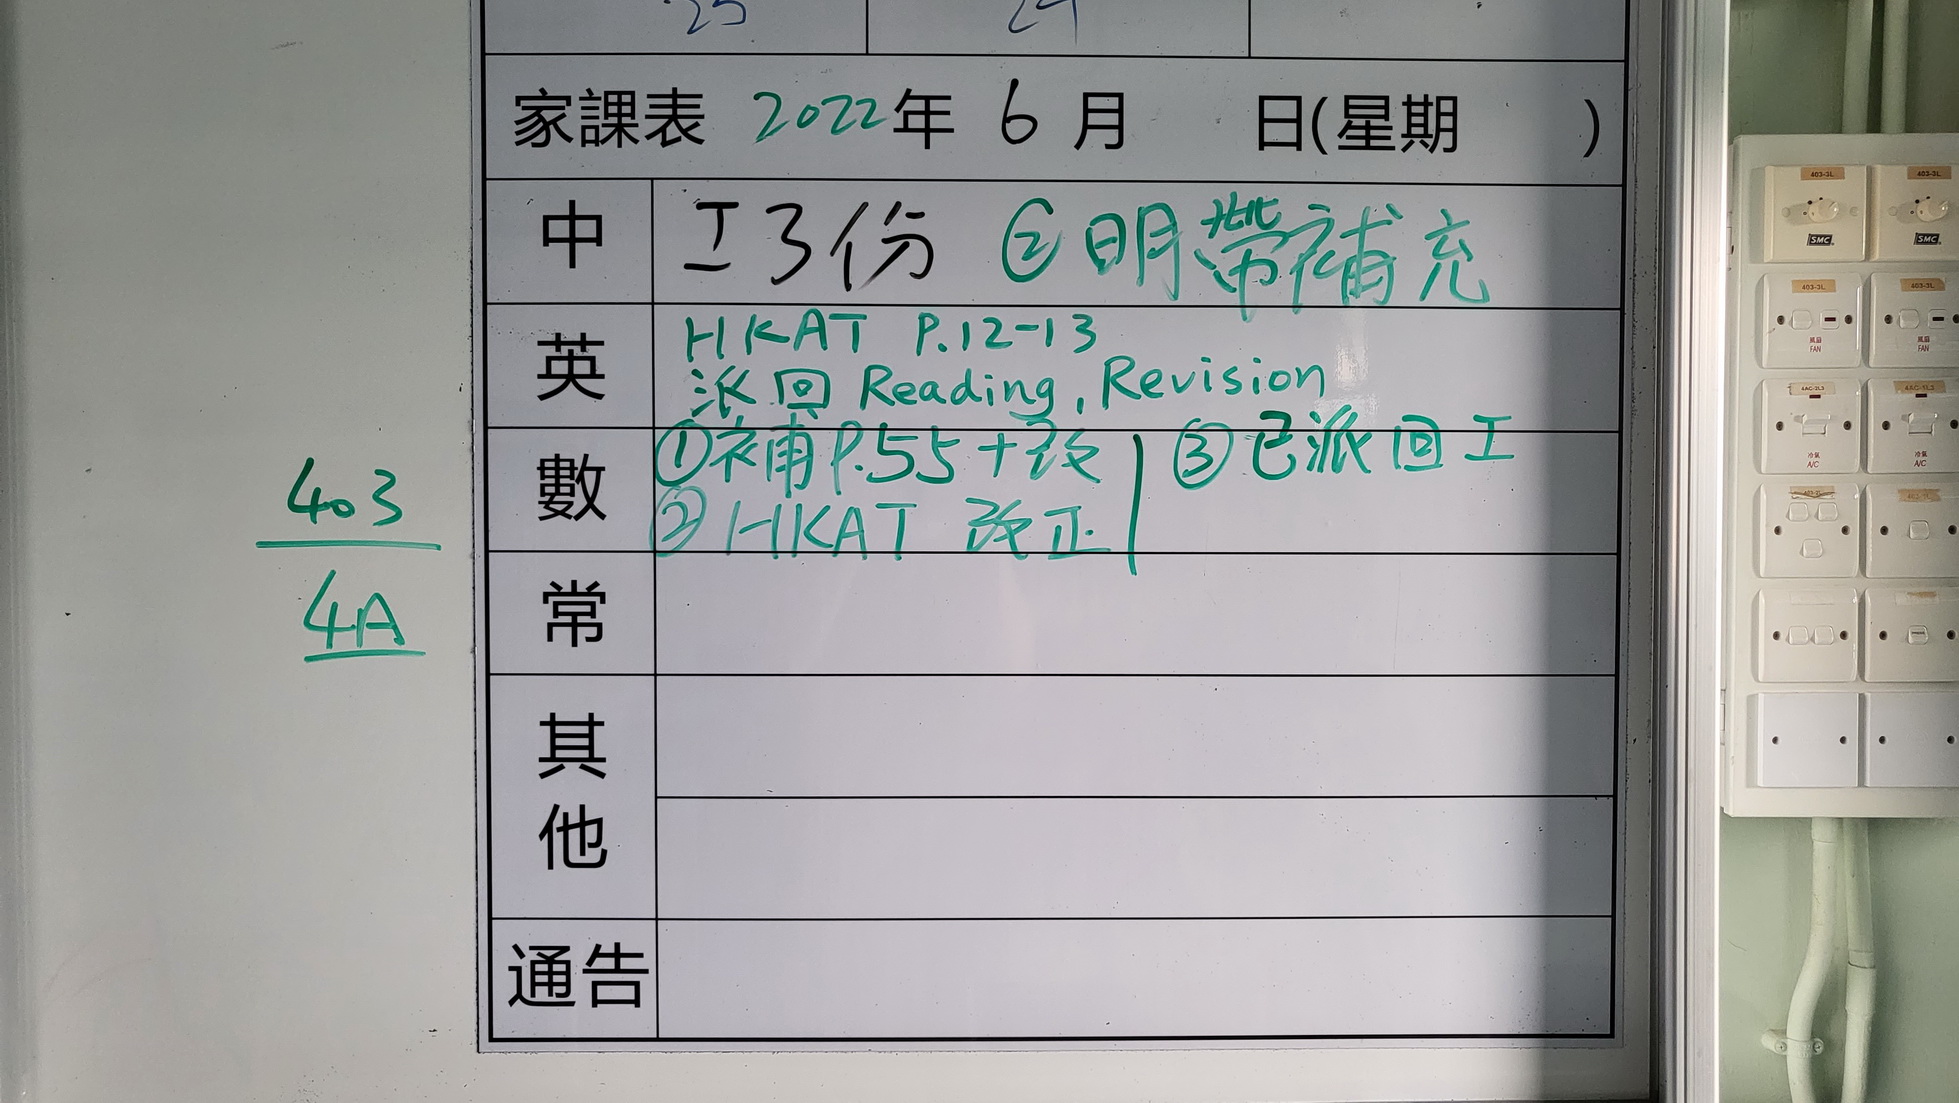 25 24
家課表 2022年 6 月 日(星期 )
中 工3份 ②明帶補充
英 HKAT P.12-13
派回 Reading, Revision
數 ①補P.55+改 ③已派回工
②HKAT 改正
常
其他
通告
403
4A
403-3L 403-3L
SMC SMC
403-3L 403-3L
風扇 風扇
FAN FAN
4AC-2L3 4AC-1L2
冷氣 冷氣
A/C A/C